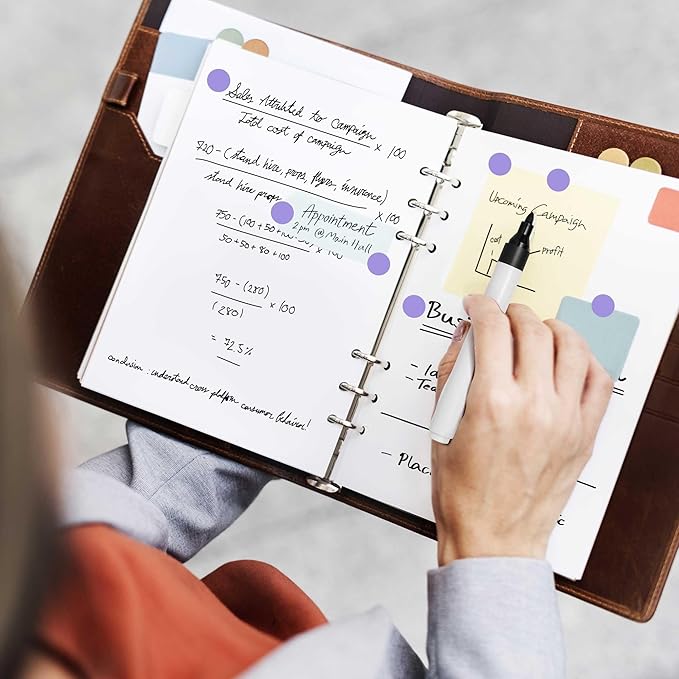 Sales Attributed to Campaign × 100
Total cost of campaign
720 - (stand hire, props, flyers, insurance) × 100
stand hire props
Appointment
2 pm @ Main Hall
750 - (100 + 50 +
50 + 50 + 80 + 100
× 100
750 - (280) × 100
(280)
= 72.5%
conclusion : understand cross platform consumer behaviors!
Upcoming Campaign
cost
profit
Busi
-
- Te
- Plac